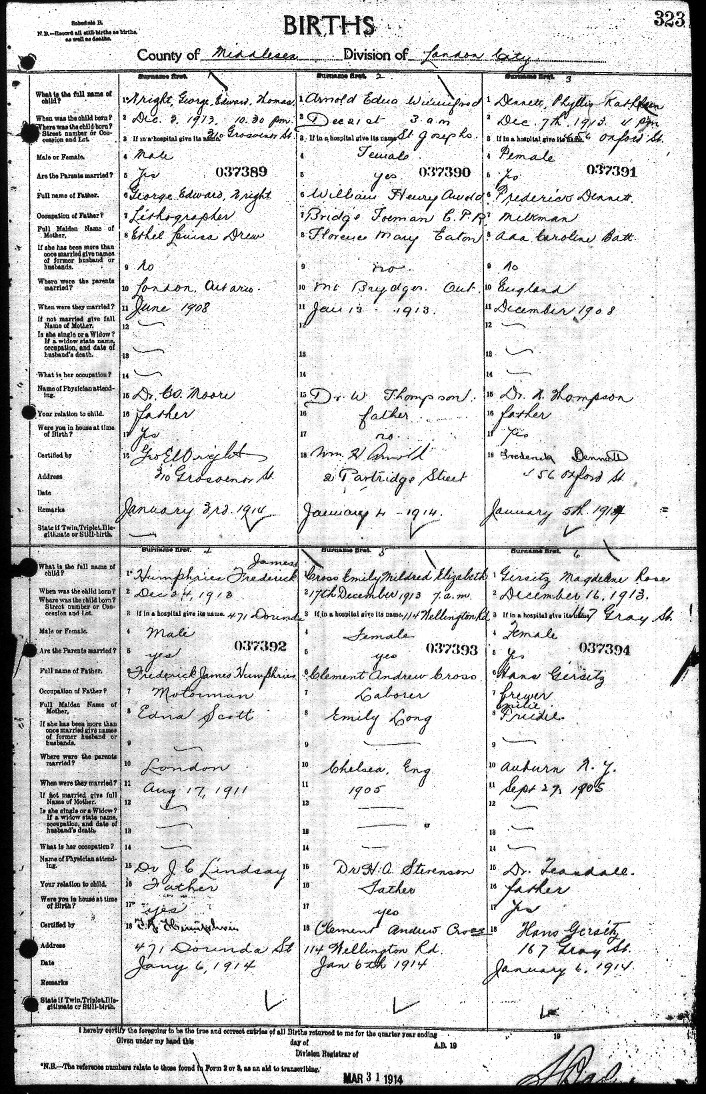 Schedule B.
N.B.—Record all still-births as births, as well as deaths.
BIRTHS
323
County of Middlesex Division of London City
Surname first. 1
Surname first. 2
Surname first. 3
What is the full name of child?
1 Wright, George, Edward, Thomas
1 Arnold Edna Winnifred
1 Dennett, Phyllis Kathleen
When was the child born?
2 Dec. 3. 1913. 10.30 pm.
2 Dec 21st 3 am
2 Dec. 7th. 1913. 4 pm
Where was the child born? Street number or Concession and Lot.
3 If in a hospital give its name. 310 Grosvenor St.
3 If in a hospital give its name St Josephs.
3 If in a hospital give its name 456 Oxford St.
Male or Female.
4 Male
4 Female
4 Female
Are the Parents married?
5 Yes 037389
5 yes 037390
5 Yes 037391
Full name of Father.
6 George Edward Wright
6 William Henry Arnold
6 Frederick Dennett
Occupation of Father?
7 Lithographer
7 Bridge Foreman C.P.R
7 Milkman
Full Maiden Name of Mother.
8 Ethel Louisa Drew
8 Florence Mary Eaton
8 Ada Caroline Batt.
If she has been more than once married give names of former husband or husbands.
9 No
9 no
9 No
Where were the parents married?
10 London, Ontario.
10 Mt Brydges Ont.
10 England
When were they married?
11 June 1908
11 Jan 13 - 1913.
11 December 1908
If not married give full Name of Mother.
12
12
12
Is she single or a Widow? If a widow state name, occupation, and date of husband's death.
13
13
13
What is her occupation?
14
14
14
Name of Physician attending.
15 Dr. CO. Moore
15 Dr. W Thompson.
15 Dr. Thompson
Your relation to child.
16 father
16 father
16 father
Were you in house at time of Birth?
17 Yes
17 no.
17 Yes
Certified by
18 Geo E Wright
18 Wm. H Arnold
18 Frederick Dennett
Address
310 Grosvenor St
2 Partridge Street
456 Oxford St.
Date
Remarks
January 3rd. 1914
January 4 - 1914.
January 5th. 1914
State if Twin, Triplet, Illegitimate or Still-birth.
Surname first. 4
Surname first. 5
Surname first. 6
What is the full name of child?
1 Humphries Frederick James
1 Cross Emily Mildred Elizabeth
1 Gersitz Magdelene Rose
When was the child born?
2 Dec 24, 1913
2 17th December 1913 7 a.m.
2 December 16, 1913.
Where was the child born? Street number or Concession and Lot.
3 If in a hospital give its name. 471 Dorinda
3 If in a hospital give its name. 114 Wellington Rd.
3 If in a hospital give its name 167 Gray St.
Male or Female.
4 Male
4 Female
4 Female
Are the Parents married?
5 yes 037392
5 yes 037393
5 Yes 037394
Full name of Father.
6 Frederick James Humphries
6 Clement Andrew Cross
6 Hans Gersitz
Occupation of Father?
7 Motorman
7 Laborer
7 brewer
Full Maiden Name of Mother.
8 Edna Scott
8 Emily Long
8
If she has been more than once married give names of former husband or husbands.
9
9
9
Where were the parents married?
10 London
10 Chelsea, Eng.
10 Auburn N.Y.
When were they married?
11 Aug 17, 1911
11 1905
11 Sept 29, 1905
If not married give full Name of Mother.
12
12
12
Is she single or a Widow? If a widow state name, occupation, and date of husband's death.
13
13
13
What is her occupation?
14
14
14
Name of Physician attending.
15 Dr J. C Lindsay
15 Dr H. A. Stevenson
15 Dr. Teasdall.
Your relation to child.
16 Father
16 Father
16 father
Were you in house at time of Birth?
17 yes
17 yes
17 Yes
Certified by
18 F. J. Humphries
18 Clement Andrew Cross
18 Hans Gersitz
Address
471 Dorinda St
114 Wellington Rd.
167 Gray St.
Date
Jany 6, 1914
Jan 6th 1914
January 6, 1914
Remarks
State if Twin, Triplet, Illegitimate or Still-birth.
I hereby certify the foregoing to be the true and correct entries of all Births returned to me for the quarter year ending 19
Given under my hand this day of A.D. 19
Division Registrar of
*N.B.—The reference numbers relate to those found in Form 2 or 3, as an aid to transcribing.
MAR 31 1914